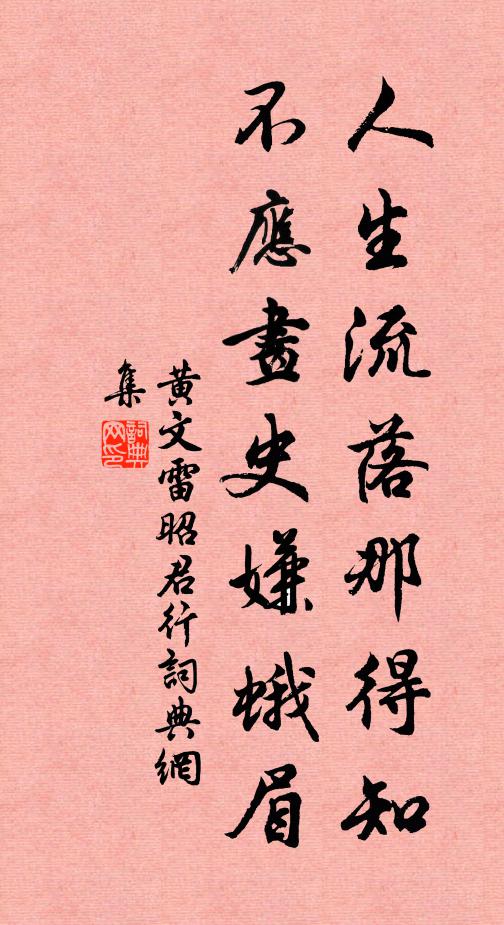 人生流落那得知
不應畫史嫌蛾眉
黃文雷昭君行詞典網
集
詞典
网印